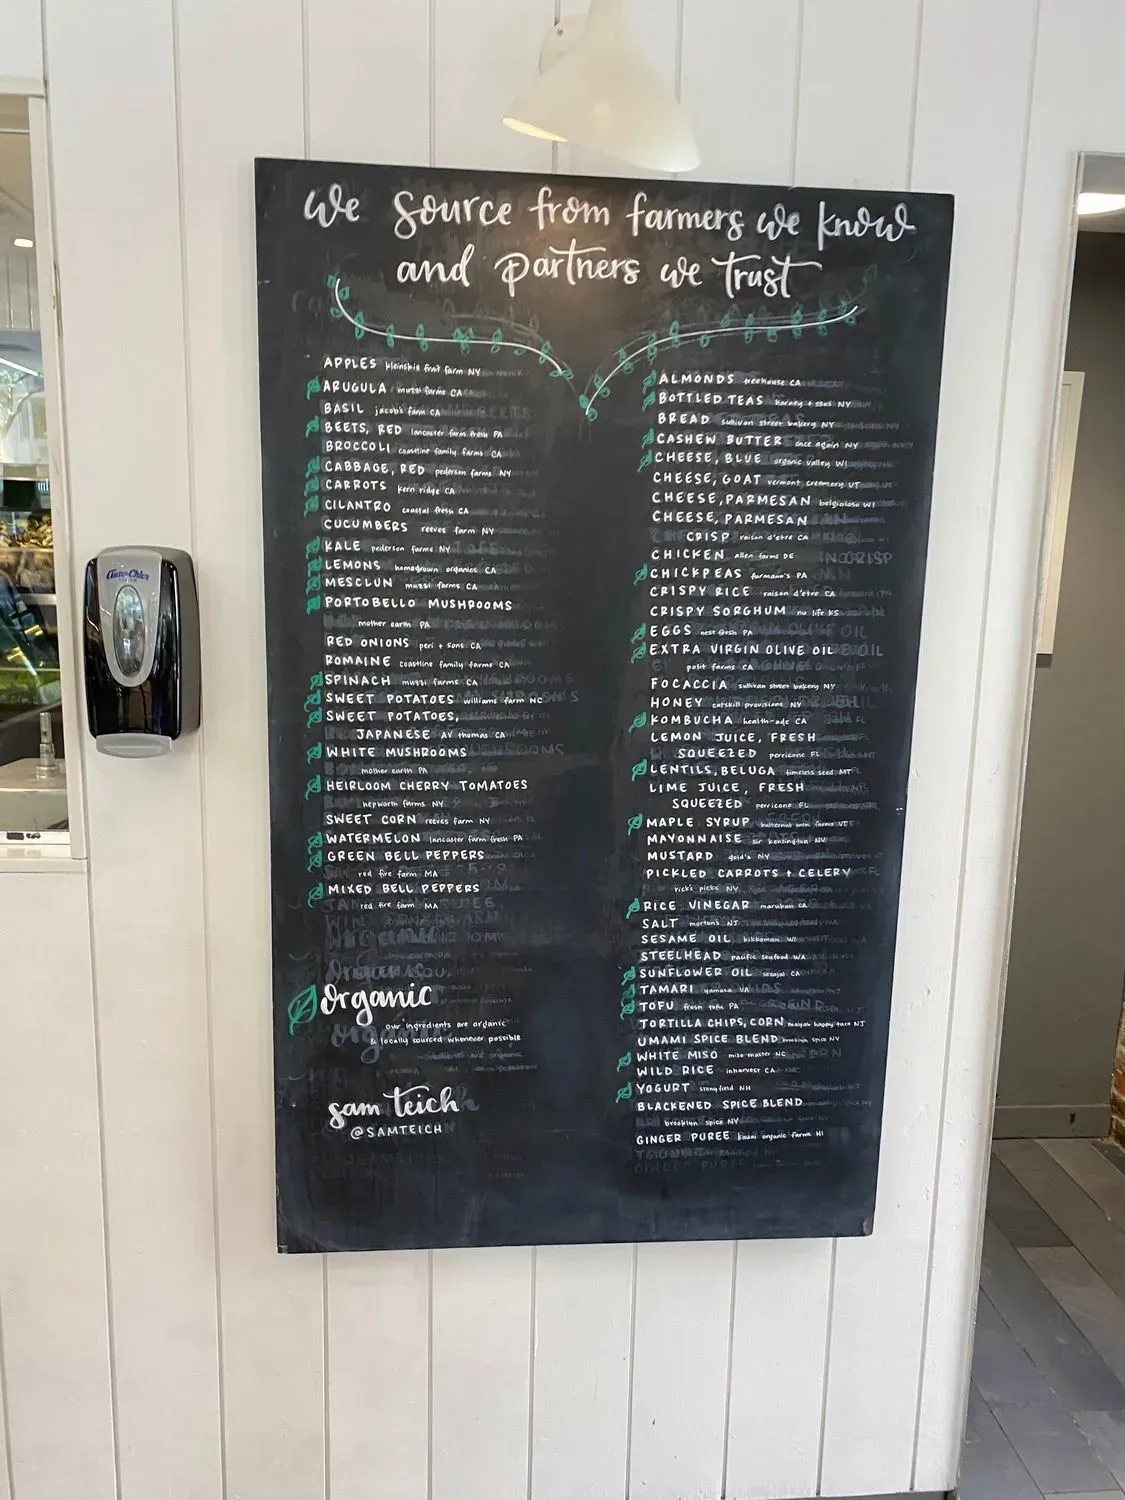 we source from farmers we know
and partners we trust
APPLES kleinskis fruit farm NY
ARUGULA muzzi farms CA
BASIL jacobs farm CA
BEETS, RED lancaster farm fresh PA
BROCCOLI coastline family farms CA
CABBAGE, RED pederson farms NY
CARROTS kern ridge CA
CILANTRO coastal fresh CA
CUCUMBERS reeves farm NY
KALE pederson farms NY
LEMONS homegrown organics CA
MESCLUN muzzi farms CA
PORTOBELLO MUSHROOMS
mother earth PA
RED ONIONS peri + sons CA
ROMAINE coastline family farms CA
SPINACH muzzi farms CA
SWEET POTATOES williams farm NC
SWEET POTATOES,
JAPANESE AV thomas CA
WHITE MUSHROOMS
mother earth PA
HEIRLOOM CHERRY TOMATOES
hepworth farms NY
SWEET CORN reeves farm NY
WATERMELON lancaster farm fresh PA
GREEN BELL PEPPERS
red fire farm MA
MIXED BELL PEPPERS
red fire farm MA
organic
our ingredients are organic
& locally sourced whenever possible
sam teich
@SAMTEICH
ALMONDS treehouse CA
BOTTLED TEAS harney + sons NY
BREAD sullivan street bakery NY
CASHEW BUTTER once again NY
CHEESE, BLUE organic valley WI
CHEESE, GOAT vermont creamery VT
CHEESE, PARMESAN belgioioso WI
CHEESE, PARMESAN
CRISP raison d'etre CA
CHICKEN allen farms DE
CHICKPEAS furmano's PA
CRISPY RICE raison d'etre CA
CRISPY SORGHUM nu life KS
EGGS nest fresh PA
EXTRA VIRGIN OLIVE OIL
polit farms CA
FOCACCIA sullivan street bakery NY
HONEY catskill provisions NY
KOMBUCHA health-ade CA
LEMON JUICE, FRESH
SQUEEZED perricone FL
LENTILS, BELUGA timeless seed MT
LIME JUICE, FRESH
SQUEEZED perricone FL
MAPLE SYRUP butternut mtn farms VT
MAYONNAISE sir kensington NV
MUSTARD gold's NY
PICKLED CARROTS + CELERY
rick's picks NY
RICE VINEGAR marukan CA
SALT morton's NJ
SESAME OIL kikkoman WI
STEELHEAD pacific seafood WA
SUNFLOWER OIL CA
TAMARI yamasa VA
TOFU fresh tofu PA
TORTILLA CHIPS, CORN mayah happy taco NJ
UMAMI SPICE BLEND brooklyn spice NY
WHITE MISO miso master NC
WILD RICE inharvest CA
YOGURT stonyfield NH
BLACKENED SPICE BLEND
brooklyn spice NY
GINGER PUREE kauai organic farms HI
Auto-Chlor